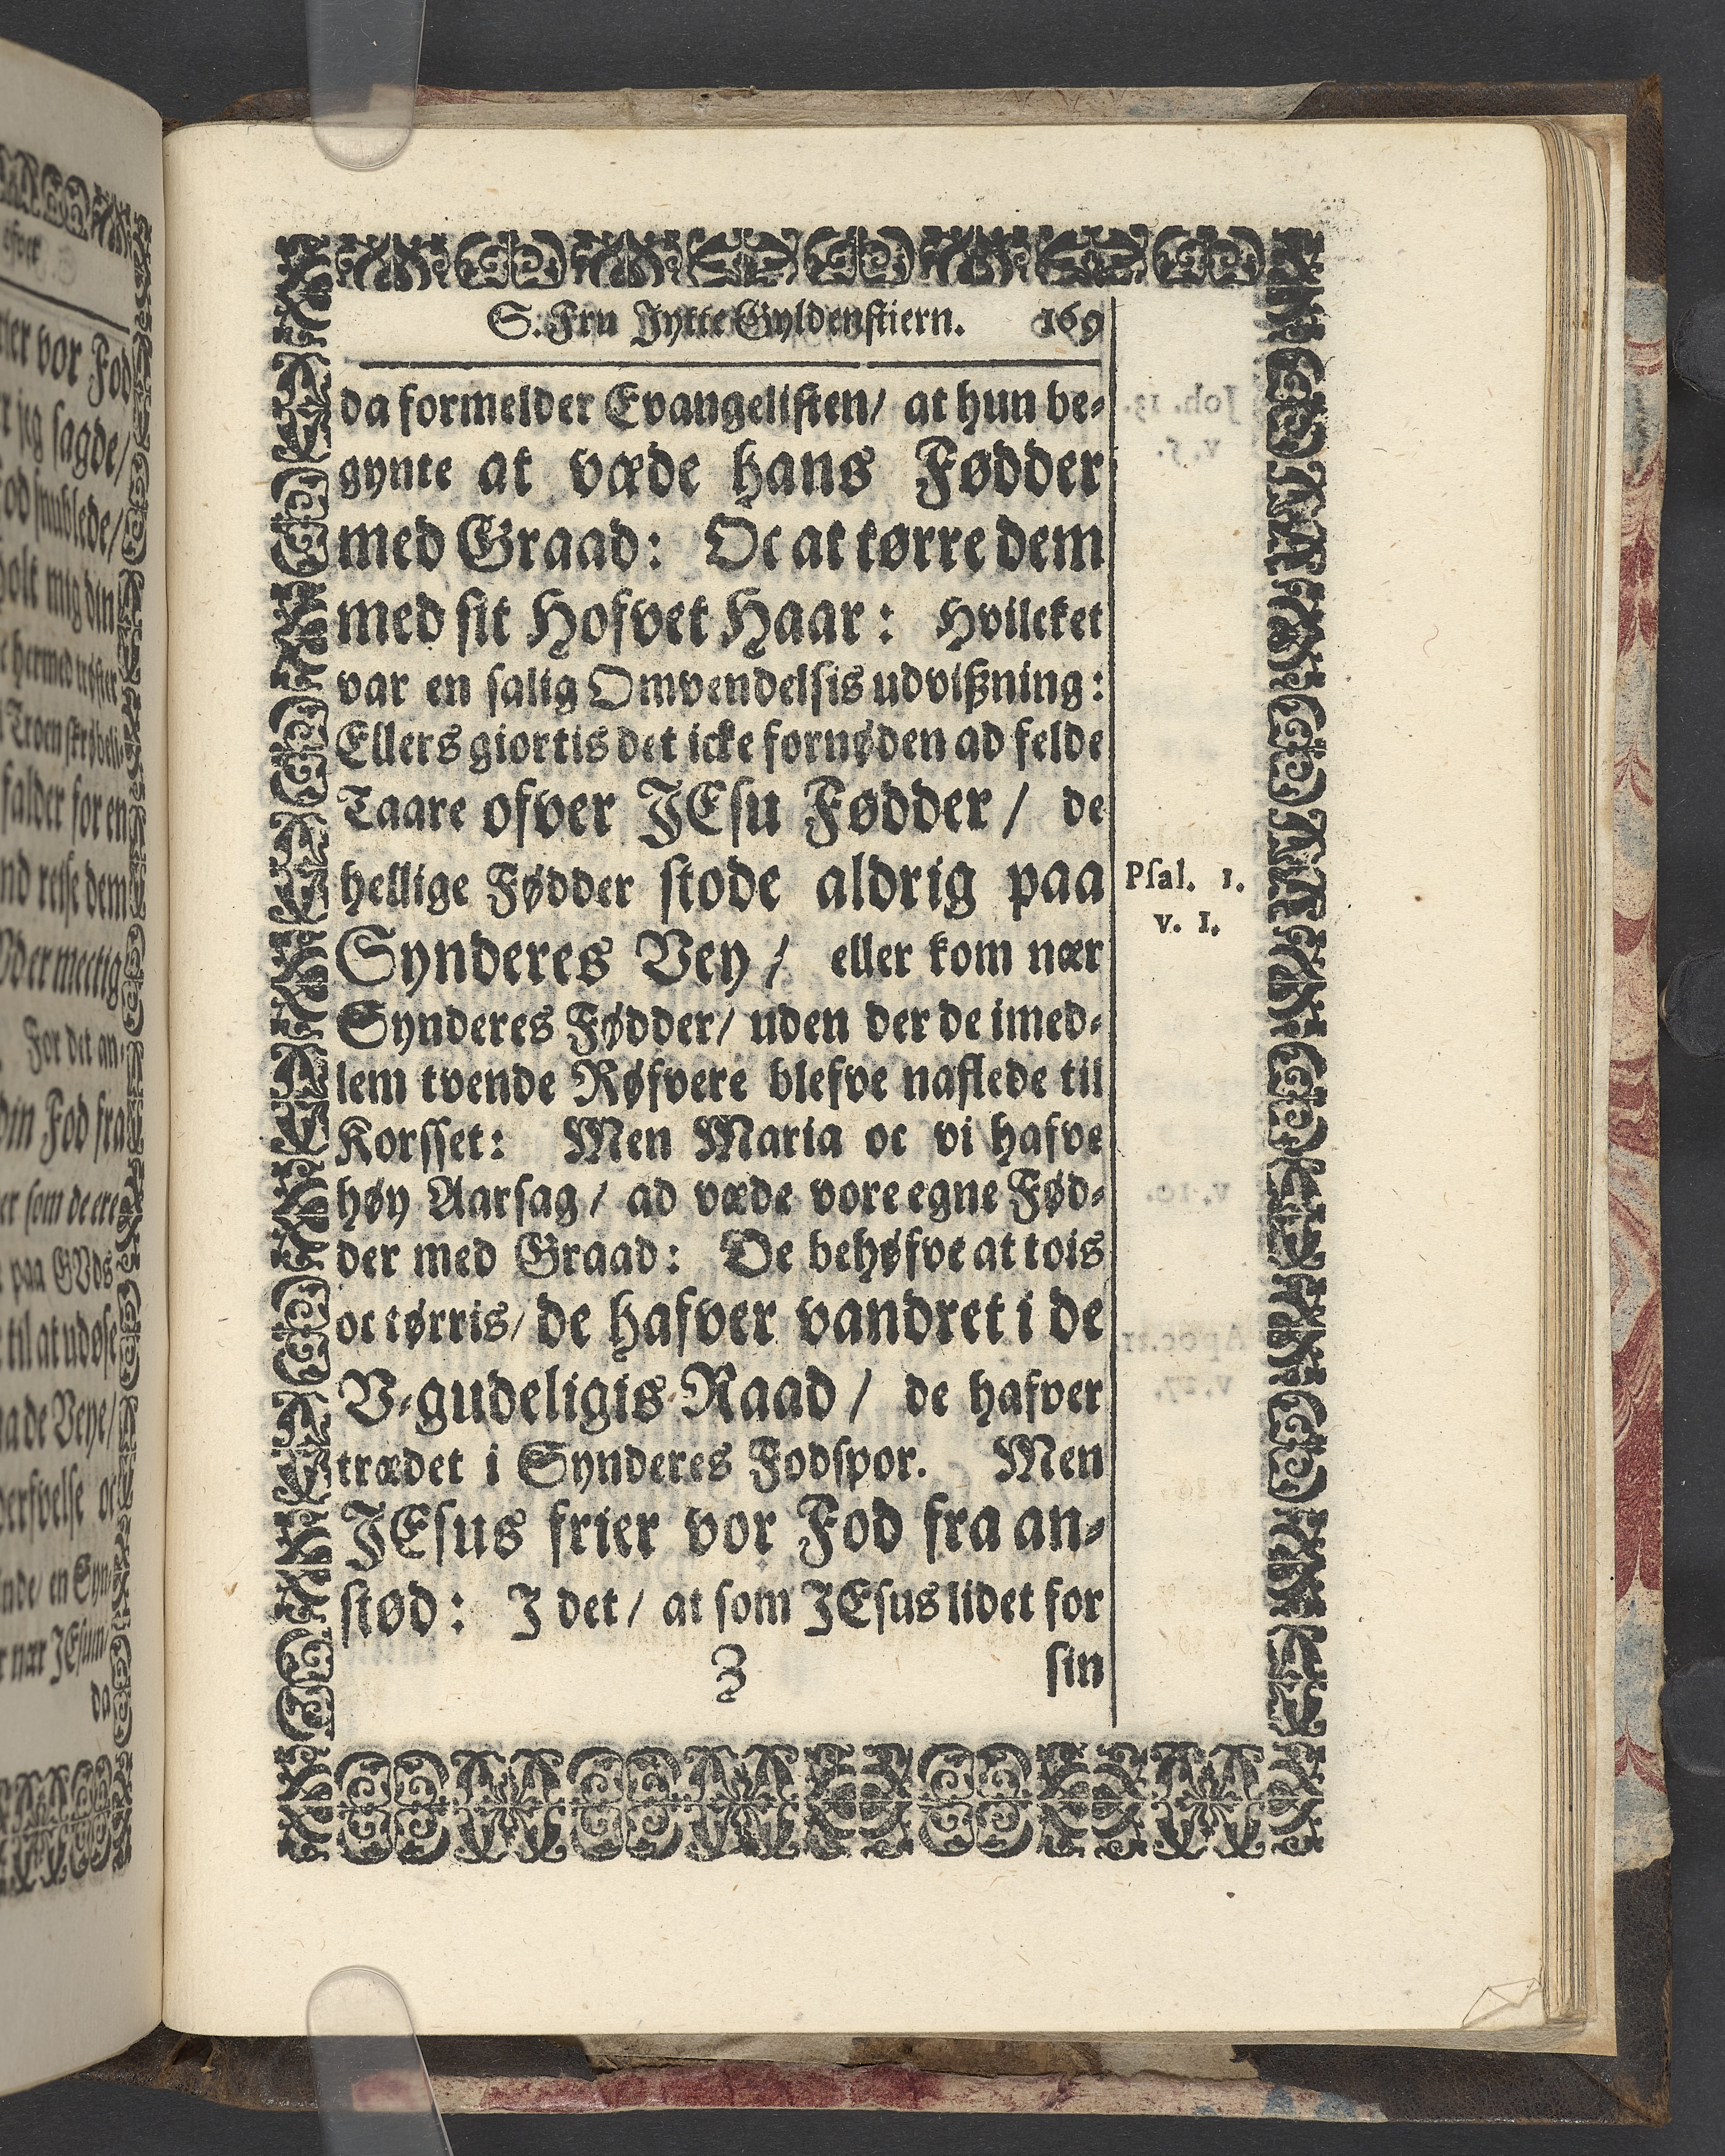 S. Fru Jytte Gyldenstiern. 169
da formelder Evangelisten/ at hun be-
gynte at væde hans Fødder
med Graad: Oc at tørre dem
med sit Hofvet Haar: Hvilcket
var en salig Omvendelsis udvißning:
Ellers giortis det icke fornøden ad felde
Taare ofver JEsu Fødder/ de
hellige Fødder stode aldrig paa
Psal. 1.
v. 1.
Synderes Vey/ eller kom nær
Synderes Fødder/ uden der de imed-
lem tvende Røfvere blefve naflede til
Korsset: Men Maria oc vi hafve
høy Aarsag/ ad væde vore egne Fød-
der med Graad: De behøfve at tois
oc tørris/ de hafver vandret i de
V-gudeligis Raad/ de hafver
trædet i Synderes Fodspor. Men
JEsus frier vor Fod fra an-
stød: J det/ at som JEsus lidet for
Z sin
vor Fod
jeg sagde/
mig din
falder for en
reise dem
For det an-
din Fod fra
som de ere
paa GVds
til at udøse
de Veye/
en Syn-
nær JEsum/
da